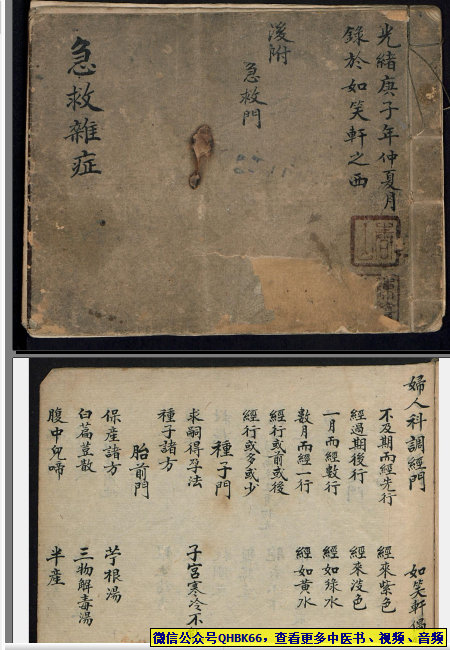 光緒庚子年仲夏月
錄於如笑軒之西
後附
急救門
急救雜症
婦人科調經門 如笑軒偶
不及期而經先行 經來紫色
經過期後行 經來淡色
一月而經數行 經如綠水
數月而經一行 經如黃水
經行或前或後
經行或多或少
種子門
求嗣得孕法 子宮寒冷不
種子諸方
胎前門
保產諸方 苧根湯
白萹荳散 三物解毒湯
腹中兒啼 半產
微信公众号QHBK66，查看更多中医书、视频、音频